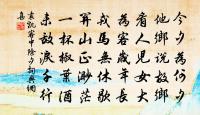 今夕為何夕
他鄉說故鄉
看人兒女大
為客歲年長
戎馬無休歇
關山正渺茫
一杯椒葉酒
未敵淚千行
袁凱客中除夕詞典網
集